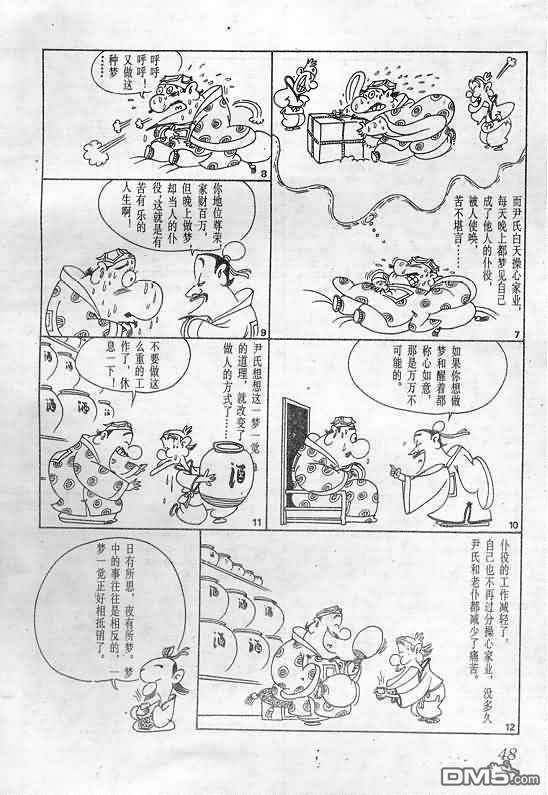 而尹氏白天操心家业，
每天晚上都梦见自己
成了他人的仆役，
被人使唤，
苦不堪言……
7
呼呼
呼呼！
又做这
种梦
……
8
你地位尊荣，
家财百万，
但晚上做梦
却当人的仆
役，这就是有
苦有乐的
人生啊！
9
如果你想做
梦和醒着都
称心如意，
那是万万不
可能的。
10
尹氏想想这一梦一觉
的道理，就改变了
做人的方式了……
不要做这
么重的工
作了，休
息一下！
酒
酒
酒
酒
11
仆役的工作减轻了，
自己也不再过分操心家业，没多久
尹氏和老仆都减少了痛苦。
酒
酒
酒
12
日有所思，夜有所梦。梦
中的事往往是相反的，一
梦一觉正好相抵销了。
48
DM5.com